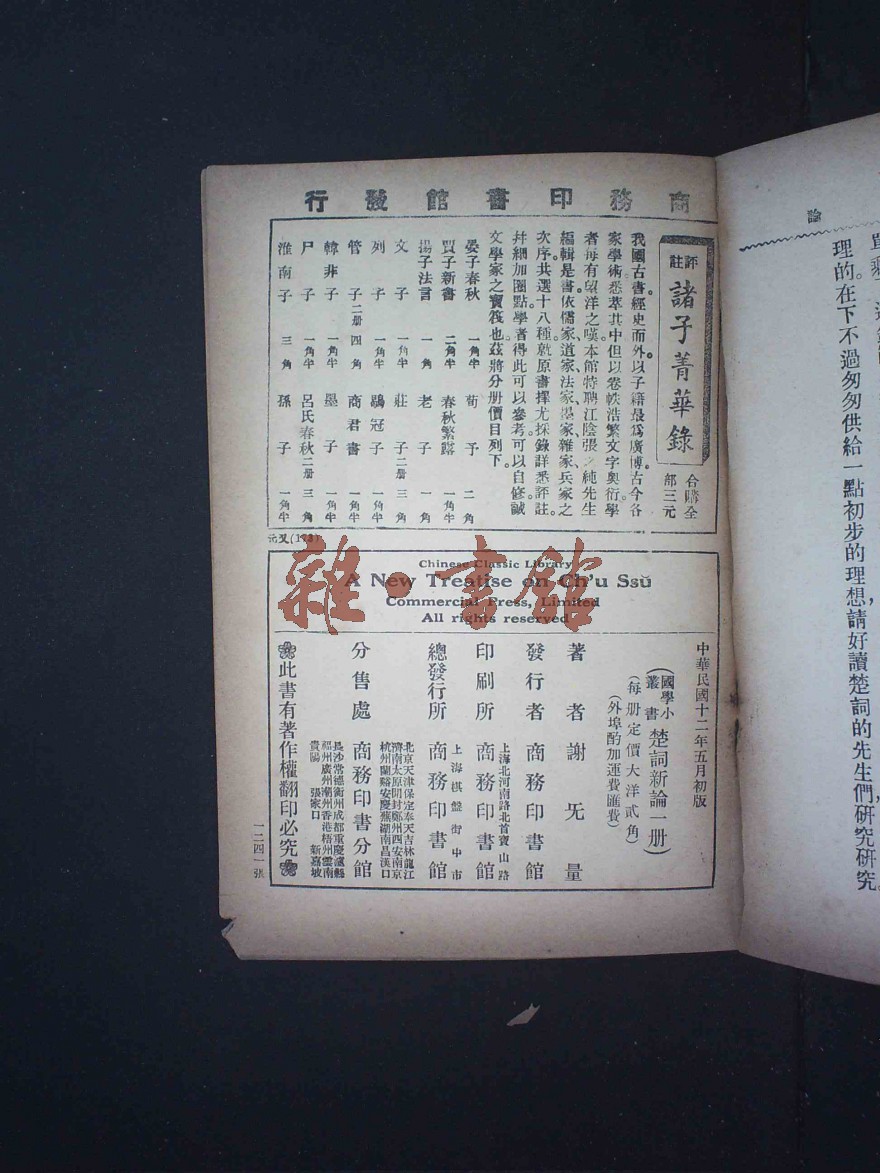 論
理的。在下不過匆匆供給一點初步的理想，請好讀楚詞的先生們研究研究。
商務印書館發行
評註諸子菁華錄
合購全部三元
我國古書。經史而外。以子籍最爲廣博。古今各
家學術。悉萃其中。但以卷帙浩繁。文字奧衍。學
者每有望洋之嘆。本館特聘江陰張之純先生
編輯是書。依儒家、道家、法家、墨家、雜家、兵家之
次序。共選十八種。就原書擇尤採錄。詳悉評註。
幷細加圈點。學者得此。可以參考。可以自修。誠
文學家之寶筏也。茲將分册價目列下。
晏子春秋 一角半 荀子 二角
賈子新書 二角 春秋繁露 一角半
揚子法言 一角 老子 一角
文子 一角半 莊子二册 三角
列子 一角半 鶡冠子 一角半
管子二册 四角 商君書 一角半
韓非子 一角半 墨子 一角半
尸子 一角半 呂氏春秋二册 三角
淮南子 三角 孫子 一角半
Chinese Classic Library
A New Treatise on Ch'u Ssŭ
Commercial Press, Limited
All rights reserved
中華民國十二年五月初版
(國學小叢書楚詞新論一册)
(每册定價大洋貳角)
(外埠酌加運費匯費)
著者 謝旡量
發行者 商務印書館
印刷所 上海北河南路北首寶山路 商務印書館
總發行所 上海棋盤街中市 商務印書館
分售處 商務印書分館
北京天津保定奉天吉林龍江
濟南太原開封鄭州西安南京
杭州蘭谿安慶蕪湖南昌漢口
長沙常德衡州成都重慶瀘縣
福州廣州潮州香港梧州雲南
貴陽 張家口 新嘉坡
此書有著作權翻印必究
一二四一張
雜·書館